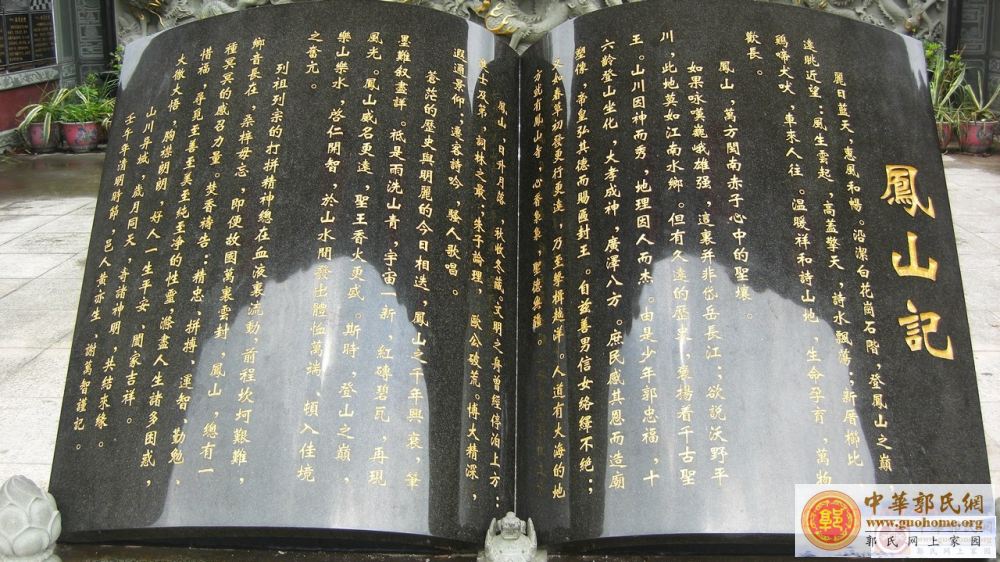 鳳山記
麗日藍天，惠風和暢。沿潔白花崗石階，登鳳山之巔
遠眺近望：風生雲起，高蓋擎天，詩水飄蕩，新厝櫛比
鷄啼犬吠，車來人往。溫暖祥和詩山地，生命孕育，萬物
歡長。
鳳山，萬方閩南赤子心中的聖壤。
如果咏嘆巍峨雄强，這裏并非岱岳長江；欲說沃野平
川，此地莫如江南水鄉。但有久遠的歷史，褒揚着千古聖
王。山川因神而秀，地理因人而杰。由是少年郭忠福，十
六齡登山坐化，大孝成神，廣澤八方。庶民感其恩而造廟
塑像，帝皇弘其德而賜匾封王。自兹善男信女絡繹不絶；
春草初發更行更遠，乃至擊楫越洋。人道有大海的地
方就有鳳山寺，心香
鳳山，日升月落，秋收冬藏。文明之舟曾經停泊上方：
進士及第，詞林之最；朱子論理，歐公破荒。博大精深，
遐邇景仰；遷客詩吟，騷人歌唱。
蒼茫的歷史與明麗的今日相送，鳳山之千年興衰，筆
墨難叙盡詳。祗是雨洗山青，宇宙一新，紅磚碧瓦，再現
風光。鳳山威名更遠，聖王香火更盛。斯時，登山之巔，
樂山樂水，啓仁開智，於山水間發出體恤萬端、頓入佳境
之奋亢。
列祖列宗的打拼精神總在血液裏流動，前程坎坷艱難，
鄉音長在，桑梓毋忘，即便故國萬裏雲封，鳳山，總有一
種冥冥的感召力量。焚香禱告：精忠、拼搏、運智、勤勉、
惜福，尋覓至善至美至純至净的性靈，滌盡人生諸多困惑，
大徹大悟，胸襟朗朗，好人一生平安、閤家吉祥。
山川异域，歲月同天，寄諸神明，共結來緣。
壬午年清明時節，邑人黄亦生、謝萬智謹記。
中華郭氏網
www.guohome.org
郭氏网上家园